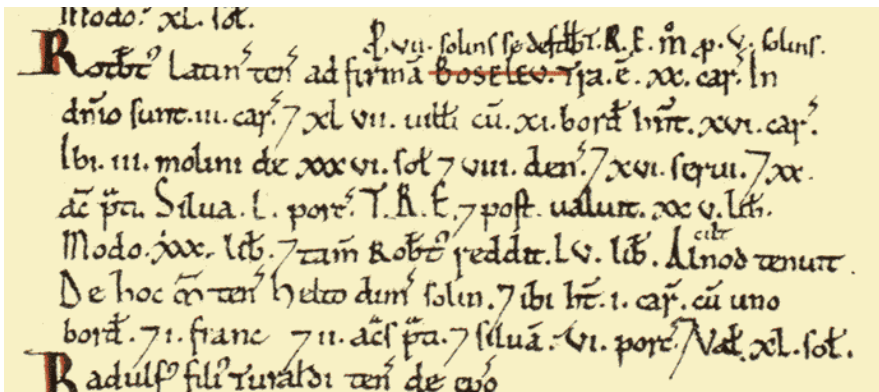 Modo. xl. sol.
p. vii. solins se defdb T.R.E. m̊ p. v. solins.
Rotbt' Latin' ten' ad firmā BOSELEV. Tra. ē. xx. car'. In
dn̄io sunt. iii. car'. ⁊ xl vii. uitti cū. xi. bord hn̄t. xvi. car'.
Ibi. iii. molini de xxxvi. sol ⁊ viii. den'. ⁊ xvi. serui. ⁊ xx.
ac̄ p̄ti. Silua. l. porc'. T.R.E. ⁊ post. ualuit. xxv. lib.
Modo. xxx. lib. ⁊ tam̄ Robt' reddit. lv. lib. Alnod cilt tenuit.
De hoc m̄ ten' helto dim' solin. ⁊ ibi ht̄. i. car'. cū uno
bord. ⁊ i. franc ⁊ ii. ac̄s p̄ti. ⁊ siluā. vi. porc'. ⁊ Val. xl. sol.
Radulf' fili' Turaldi ten' de ep̄o